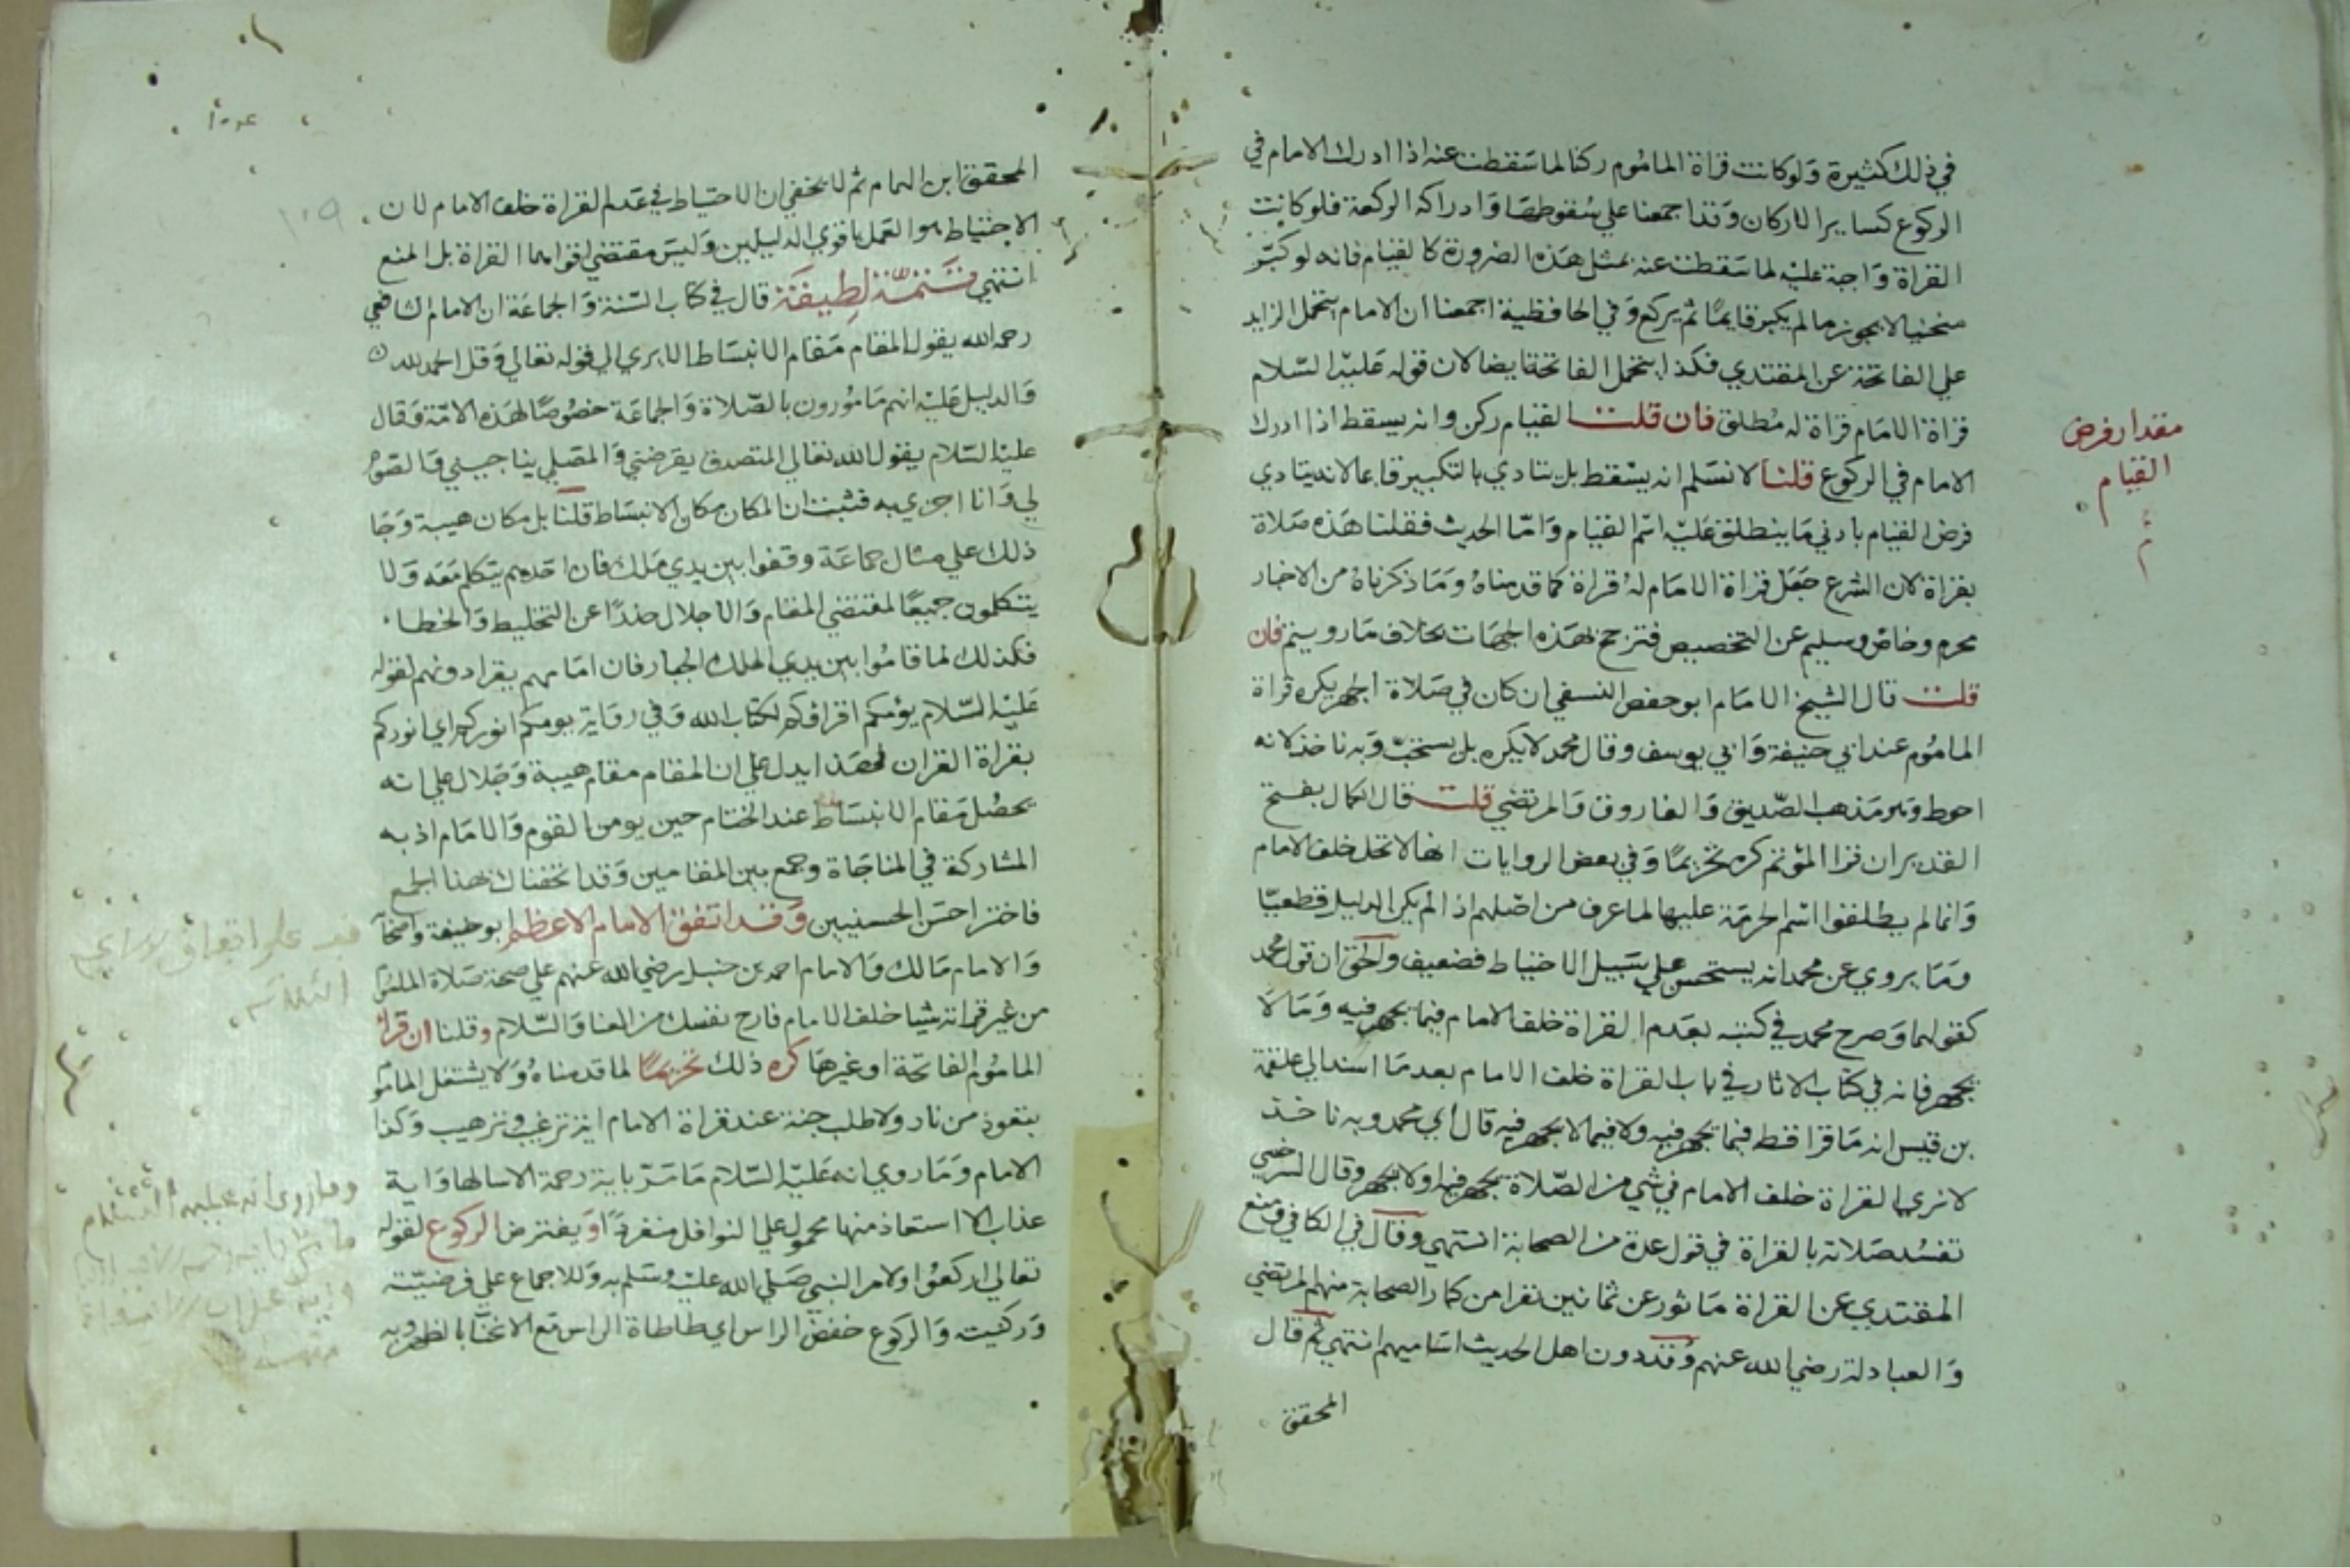 في ذلك كثيرة ولو كانت قراة الماموم ركنا لما سقطت عنه اذا ادرك الامام في
الركوع كساير الاركان وقد اجمعنا علي سقوطها وادراكه الركعة فلو كانت
القراة واجبة عليه لما سقطت عنه بمثل هذه الضرورة كالقيام فانه لو كبر
منحنيا لا يجوز ما لم يكبر قايما ثم يركع وفي الحافظية اجمعنا ان الامام يتحمل الزايد
علي الفاتحة عن المقتدي فكذا يتحمل الفاتحة ايضا لان قوله عليه السلام
قراة الامام قراة له مطلق فان قلت القيام ركن وانه يسقط اذا ادرك
الامام في الركوع قلنا لا نسلم انه يسقط بل يتادي بالتكبير قايما لانه يتادي
فرض القيام بادني ما ينطلق عليه اسم القيام واما الحديث فقلنا هذه صلاة
بقراة لان الشرع جعل قراة الامام له قراة كما قدمناه وما ذكرناه من الاخبار
محرم وخاص وسليم عن التخصيص فترجح بهذه الجهات بخلاف ما رويتم فان
قلت قال الشيخ الامام ابو حفص النسفي ان كان في صلاة الجهر يكره قراة
الماموم عند ابي حنيفة وابي يوسف وقال محمد لا يكره بل يستحب وبه ناخذ لانه
احوط وهو مذهب الصديق والفاروق والمرتضي قلت قال الكمال بفتح
القدير ان قرا المؤتم كره تحريما وفي بعض الروايات انها لا تحل خلف الامام
وانما لم يطلقوا اسم الحرمة عليها لما عرف من اصلهم اذا لم يكن الدليل قطعيا
وما يروي عن محمد انه يستحسن علي سبيل الاحتياط فضعيف والحق ان قول محمد
كقولهما وصرح محمد في كتبه بعدم القراة خلف الامام فيما يجهر فيه وما لا
يجهر فانه في كتاب الاثار في باب القراة خلف الامام بعد ما اسند الي علقمة
بن قيس انه ما قرا قط فيما يجهر فيه ولا فيما لا يجهر فيه قال اي محمد وبه ناخذ
لا نري القراة خلف الامام في شي من الصلاة يجهر فيها او لا يجهر وقال السرخسي
تفسد صلاته بالقراة في قول عدة من الصحابة انتهي وقال في الكافي ومنع
المقتدي عن القراة ماثور عن ثمانين نفرا من كبار الصحابة منهم المرتضي
والعبادلة رضي الله عنهم وقد دون اهل الحديث اساميهم انتهي ثم قال
المحقق
مقدار فرض
القيام
١٠٩
المحقق ابن الهمام ثم لا يخفي ان الاحتياط في عدم القراة خلف الامام لان
الاحتياط هو العمل باقوي الدليلين وليس مقتضي اقواهما القراة بل المنع
انتهي تتمة لطيفة قال في كتاب السنة والجماعة ان الامام الشافعي
رحمه الله يقول المقام مقام الانبساط الا يري الي قوله تعالي وقل الحمد لله
والدليل عليه انهم مامورون بالصلاة والجماعة خصوصا لهذه الامة وقال
عليه السلام يقول الله تعالي المتصدق يقرضني والمصلي يناجيني والصوم
لي وانا اجزي به فثبت ان المكان مكان الانبساط قلنا بل مكان هيبة وجا
ذلك علي مثال جماعة وقفوا بين يدي ملك فان احدهم يتكلم معه ولا
يتكلمون جميعا لمقتضي المقام والاجلال حذرا عن التخليط والخطا
فكذلك لما قاموا بين يدي الملك الجبار فان امامهم يقرا دونهم لقوله
عليه السلام يؤمكم اقراكم لكتاب الله وفي رواية يومكم انوركم اي انوركم
بقراة القران فهذا يدل علي ان المقام مقام هيبة وجلال علي انه
يحصل مقام الانبساط عند الختام حين يومن القوم والامام اذ به
المشاركة في المناجاة وجمع بين المقامين وقد اتحفناك بهذا الجمع
فاختر احسن الحسنيين وقد اتفق الامام الاعظم ابو حنيفة واصحا
والامام مالك والامام احمد بن حنبل رضي الله عنهم علي صحة صلاة الماموم
من غير قراته شيا خلف الامام فارح نفسك من العنا والسلام وقلنا ان قرا
الماموم الفاتحة او غيرها كره ذلك تحريما لما قدمناه ولا يشتغل المامو
بتعوذ من نار ولا طلب جنة عند قراة الامام اية ترغيب وترهيب وكذا
الامام وما روي انه عليه السلام ما مر باية رحمة الا سالها واية
عذاب الا استعاذ منها محمول علي النوافل منفردا او يفترض الركوع لقوله
تعالي اركعوا ولامر النبي صلي الله عليه وسلم به وللاجماع علي فرضيته
وركنيته والركوع خفض الراس اي طاطاة الراس مع الانحنا بالظهر وبه
وما روي انه عليه السلام